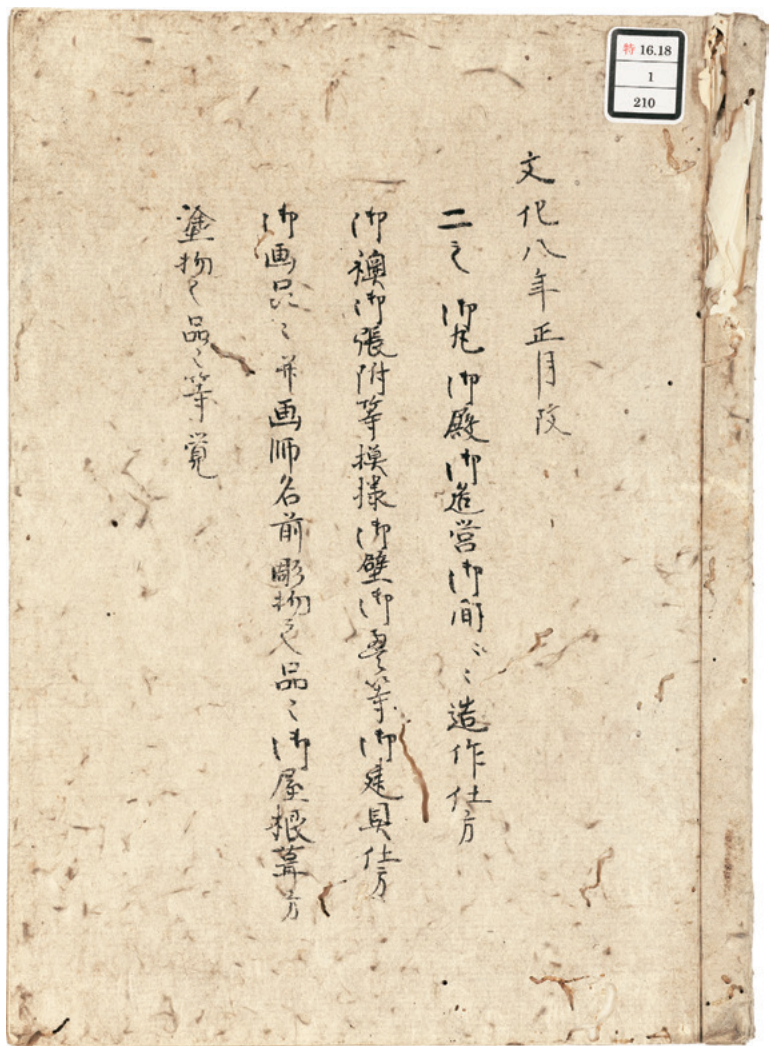 特 16.18
1
210
文化八年正月改
二之御丸御殿御造営御間々造作仕方
御襖御張附等摸様御壁御畳等御建具仕方
御画品々并画師名前彫物之品々御屋根葺方
塗物之品々等覚